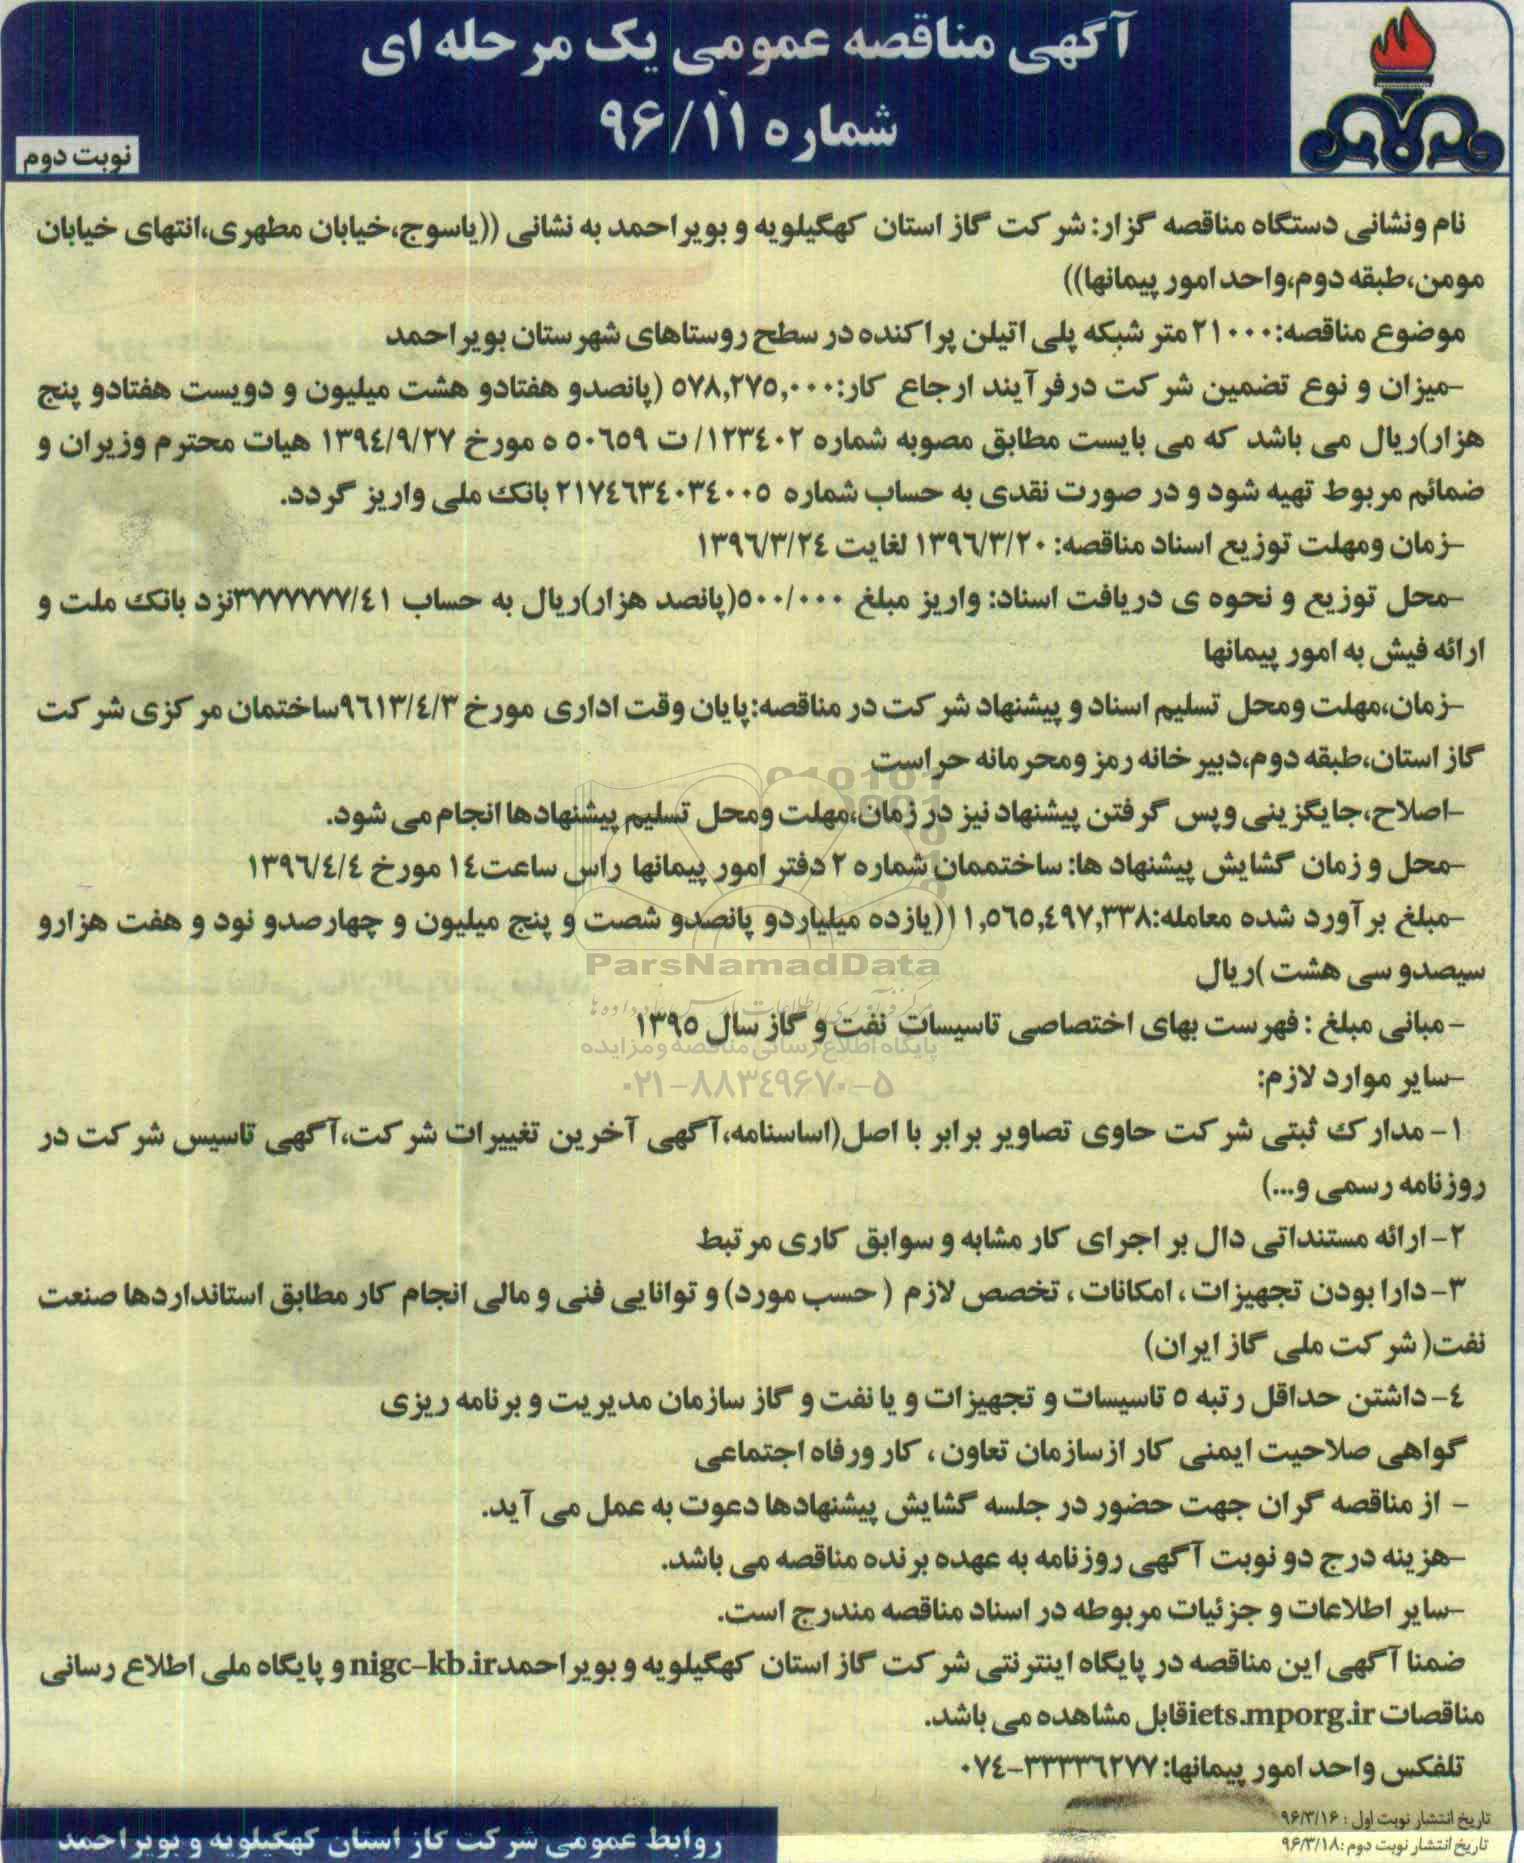 آگهی مناقصه عمومی یک مرحله ای
شماره ۹۶/۱۱
نوبت دوم
نام ونشانی دستگاه مناقصه گزار: شرکت گاز استان کهگیلویه و بویراحمد به نشانی ((یاسوج،خیابان مطهری،انتهای خیابان
مومن،طبقه دوم،واحد امور پیمانها))
موضوع مناقصه:۲۱۰۰۰ متر شبکه پلی اتیلن پراکنده در سطح روستاهای شهرستان بویراحمد
-میزان و نوع تضمین شرکت درفرآیند ارجاع کار:۵۷۸,۲۷۵,۰۰۰ (پانصدو هفتادو هشت میلیون و دویست هفتادو پنج
هزار)ریال می باشد که می بایست مطابق مصوبه شماره ۱۲۳٤۰۲/ ت ۵۰٦۵۹ ه مورخ ۱۳۹٤/۹/۲۷ هیات محترم وزیران و
ضمائم مربوط تهیه شود و در صورت نقدی به حساب شماره ۲۱۷٤٦۳٤۰۳٤۰۰۵ بانک ملی واریز گردد.
-زمان ومهلت توزیع اسناد مناقصه: ۱۳۹٦/۳/۲۰ لغایت ۱۳۹٦/۳/۲٤
-محل توزیع و نحوه ی دریافت اسناد: واریز مبلغ ۵۰۰/۰۰۰(پانصد هزار)ریال به حساب ۳۷۷۷۷۷۷/٤۱نزد بانک ملت و
ارائه فیش به امور پیمانها
-زمان،مهلت ومحل تسلیم اسناد و پیشنهاد شرکت در مناقصه:پایان وقت اداری مورخ ۹٦۱۳/٤/۳ساختمان مرکزی شرکت
گاز استان،طبقه دوم،دبیرخانه رمز ومحرمانه حراست
-اصلاح،جایگزینی وپس گرفتن پیشنهاد نیز در زمان،مهلت ومحل تسلیم پیشنهادها انجام می شود.
-محل و زمان گشایش پیشنهاد ها: ساختممان شماره ۲ دفتر امور پیمانها راس ساعت۱٤ مورخ ۱۳۹٦/٤/٤
-مبلغ برآورد شده معامله:۱۱,۵٦۵,٤۹۷,۳۳۸(یازده میلیاردو پانصدو شصت و پنج میلیون و چهارصدو نود و هفت هزارو
سیصدو سی هشت )ریال
ParsNamadData
- مبانی مبلغ : فهرست بهای اختصاصی تاسیسات نفت و گاز سال ۱۳۹۵
پایگاه اطلاع رسانی مناقصه و مزایده
-سایر موارد لازم:
۰۲۱-۸۸۳۴۹۶۷۰-۵
۱- مدارک ثبتی شرکت حاوی تصاویر برابر با اصل(اساسنامه،آگهی آخرین تغییرات شرکت،آگهی تاسیس شرکت در
روزنامه رسمی و...)
۲- ارائه مستنداتی دال بر اجرای کار مشابه و سوابق کاری مرتبط
۳- دارا بودن تجهیزات ، امکانات ، تخصص لازم ( حسب مورد) و توانایی فنی و مالی انجام کار مطابق استانداردها صنعت
نفت( شرکت ملی گاز ایران)
٤- داشتن حداقل رتبه ۵ تاسیسات و تجهیزات و یا نفت و گاز سازمان مدیریت و برنامه ریزی
گواهی صلاحیت ایمنی کار ازسازمان تعاون ، کار ورفاه اجتماعی
- از مناقصه گران جهت حضور در جلسه گشایش پیشنهادها دعوت به عمل می آید.
-هزینه درج دو نوبت آگهی روزنامه به عهده برنده مناقصه می باشد.
-سایر اطلاعات و جزئیات مربوطه در اسناد مناقصه مندرج است.
ضمنا آگهی این مناقصه در پایگاه اینترنتی شرکت گاز استان کهگیلویه و بویراحمدnigc-kb.ir و پایگاه ملی اطلاع رسانی
مناقصات iets.mporg.irقابل مشاهده می باشد.
تلفکس واحد امور پیمانها: ۳۳۳۳٦۲۷۷-۰۷٤
تاریخ انتشار نوبت اول : ۹۶/۳/۱۶
تاریخ انتشار نوبت دوم :۹۶/۳/۱۸
روابط عمومی شرکت گاز استان کهگیلویه و بویراحمد